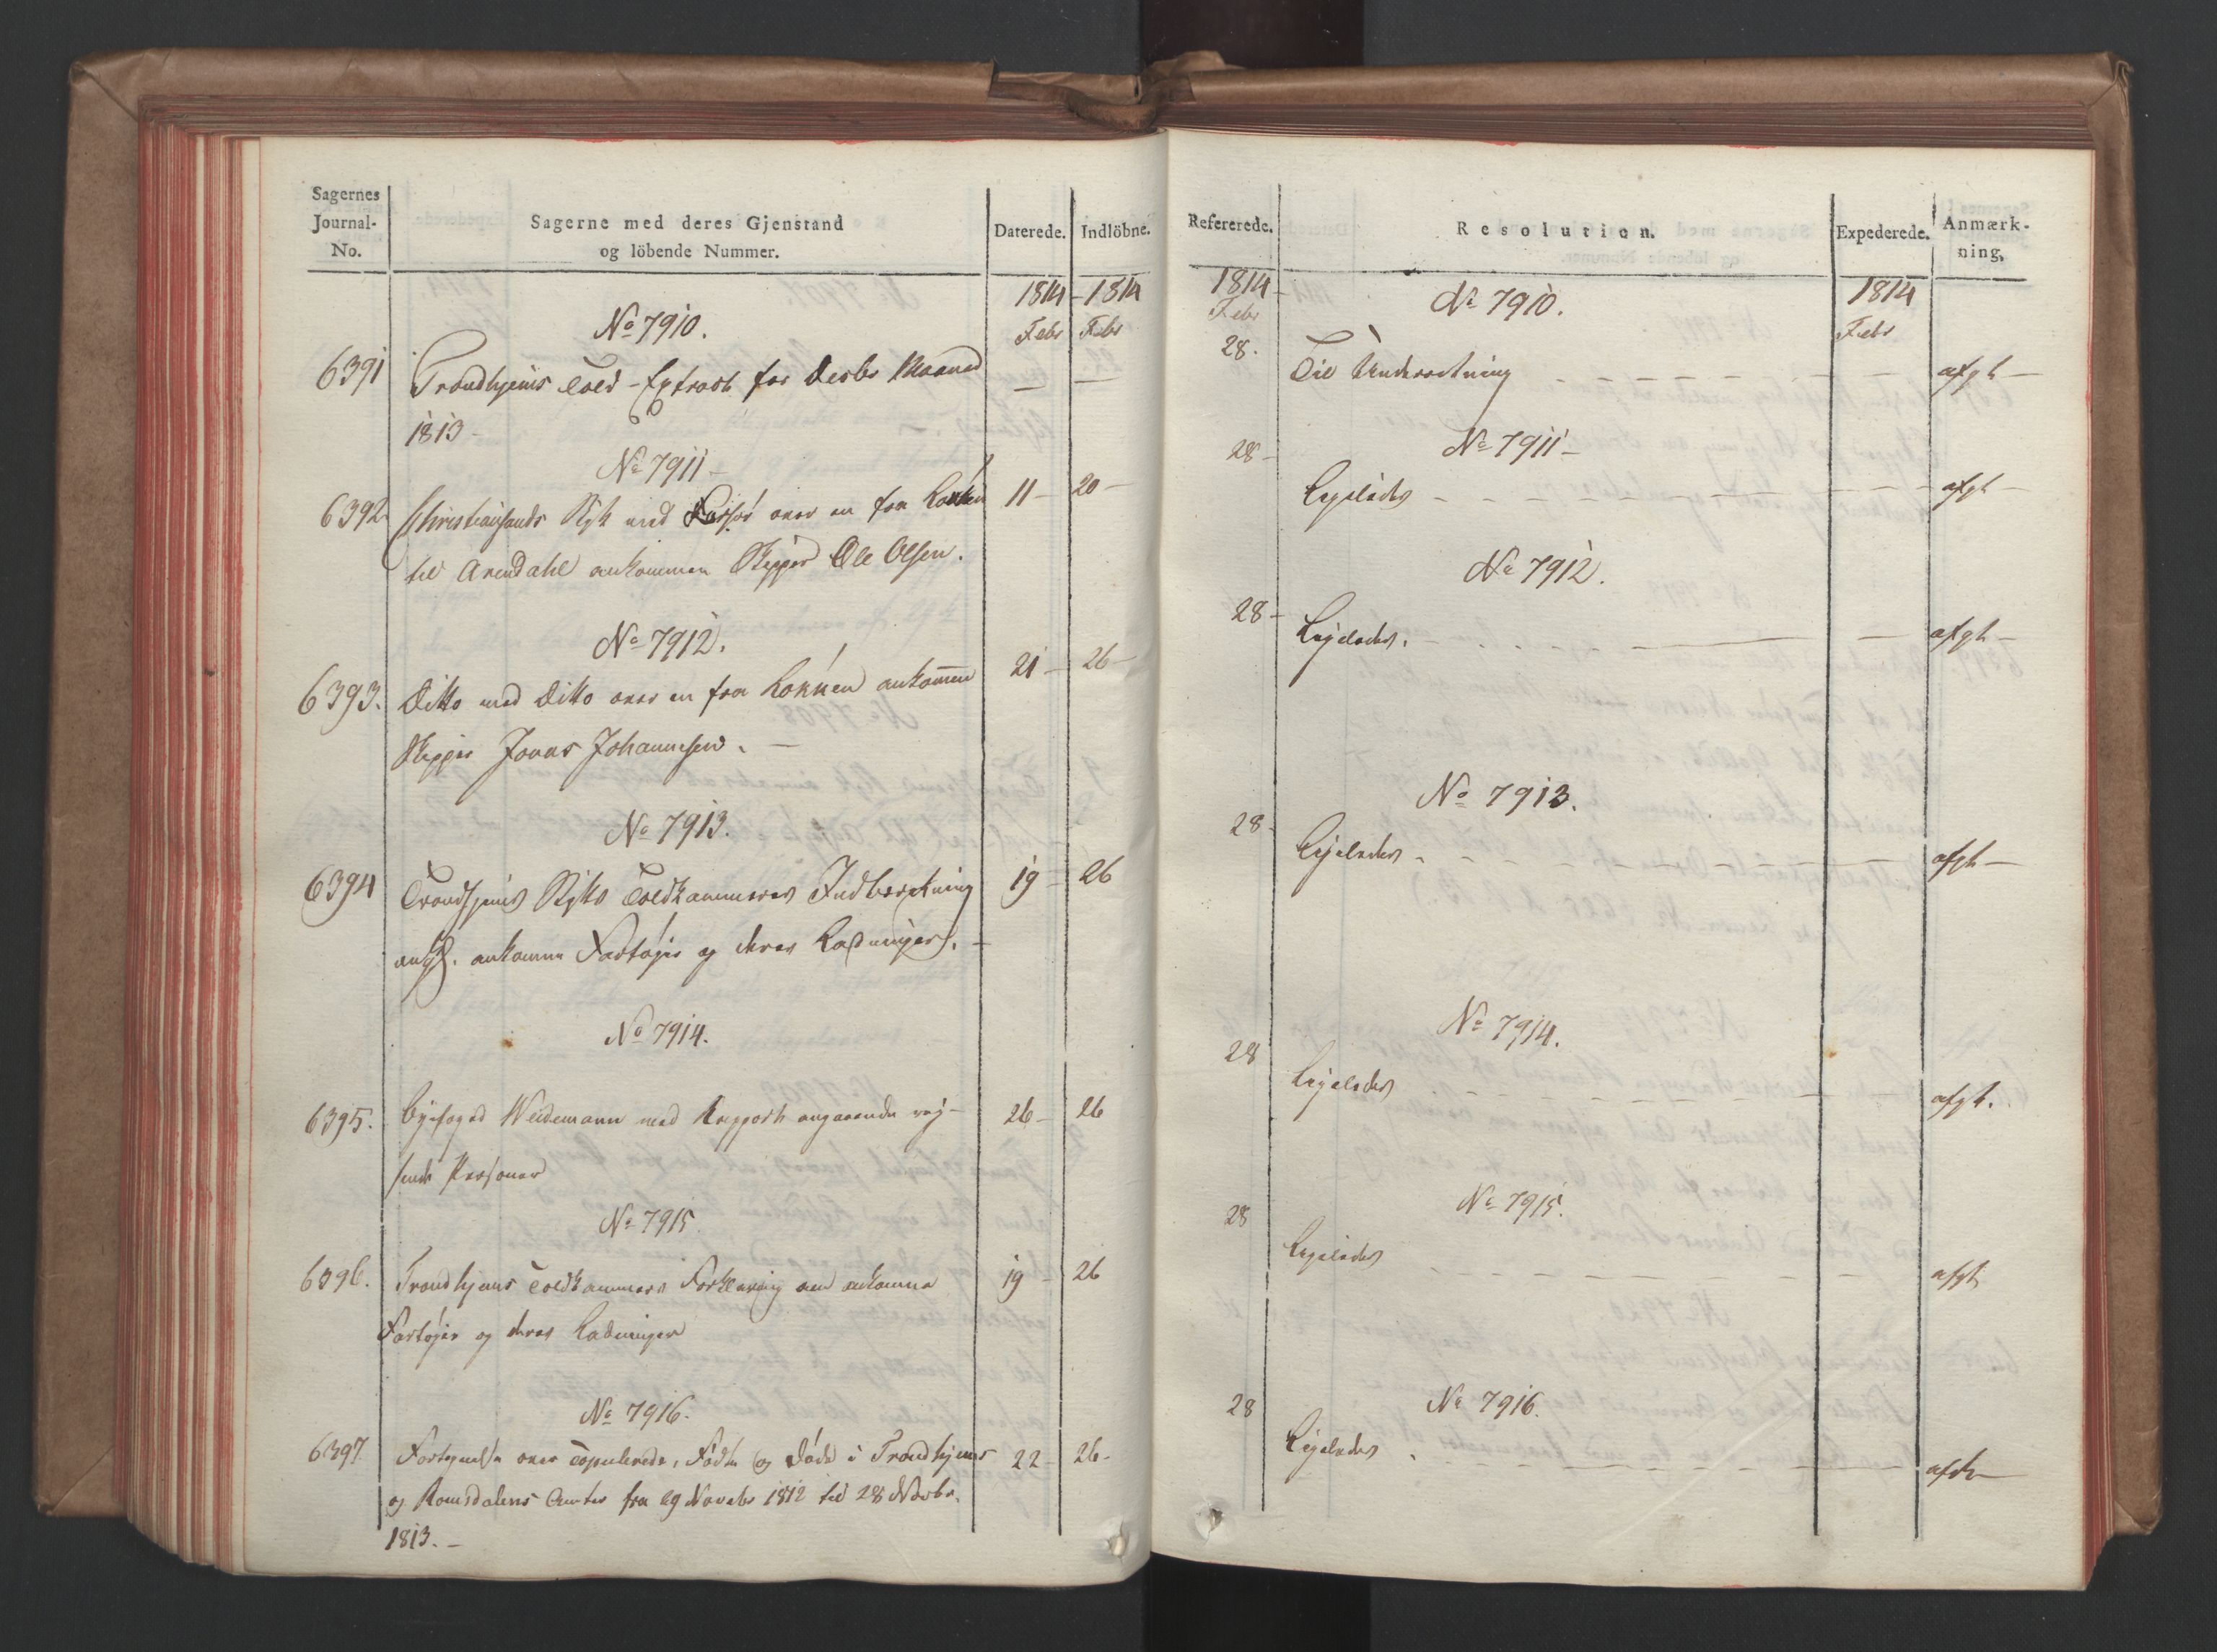 Sagernes
Journal-
No.
Sagerne med deres Gjenstand
og löbende Nummer.
Daterede.
Indlöbne.
1814 - 1814
Febr Febr
No 7910.
6391 Trondhjems Told-Extract for Decbr Maaned — —
1813 -
No 7911 -
6392 Christiansands Stift med over en fra Løkken 11 - 20 -
til Arendahl ankommen Skipper Ole Olsen.
No 7912.
6393. Ditto med Ditto over en fra Løkken ankommen 21 - 26 -
Skipper Jonas Johannesen. -
No 7913.
6394 Trondhjems Toldkammeres Indberetning 19 - 26
ang. ankomne Fartøjer og deres Ladninger. -
No 7914.
6395. Byefoged Weidemann med Rapport angaaende rej- 26 - 26
sende Personer
No 7915
6396. Trondhjems Toldkammers Forklaring om ankomne 19 - 26
Fartøjer og deres Ladninger
No 7916.
6397 Fortegnelse over Copulerede, Fødte og Døde i Trondhjems 22 - 26 -
og Romsdalens Amter fra 29 Novebr 1812 til 28 Novbr.
1813. -
Refererede.
Resolution.
Expederede.
Anmærk-
ning.
1814 1814
Febr Febr
No 7910.
28. Til Underretning afgt -
No 7911 -
28 - Ligeledes afgt -
No 7912.
28 - Ligeledes. afgt -
No 7913.
28 - Ligeledes afgt -
No 7914.
28 Ligeledes afgt.
No 7915.
28 Ligeledes afgt
No 7916.
28 Ligeledes afgt -